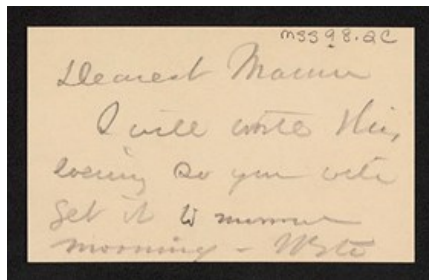 mss98.ac
Dearest Mamma
I will write this
evening so you will
get it to morrow
morning -